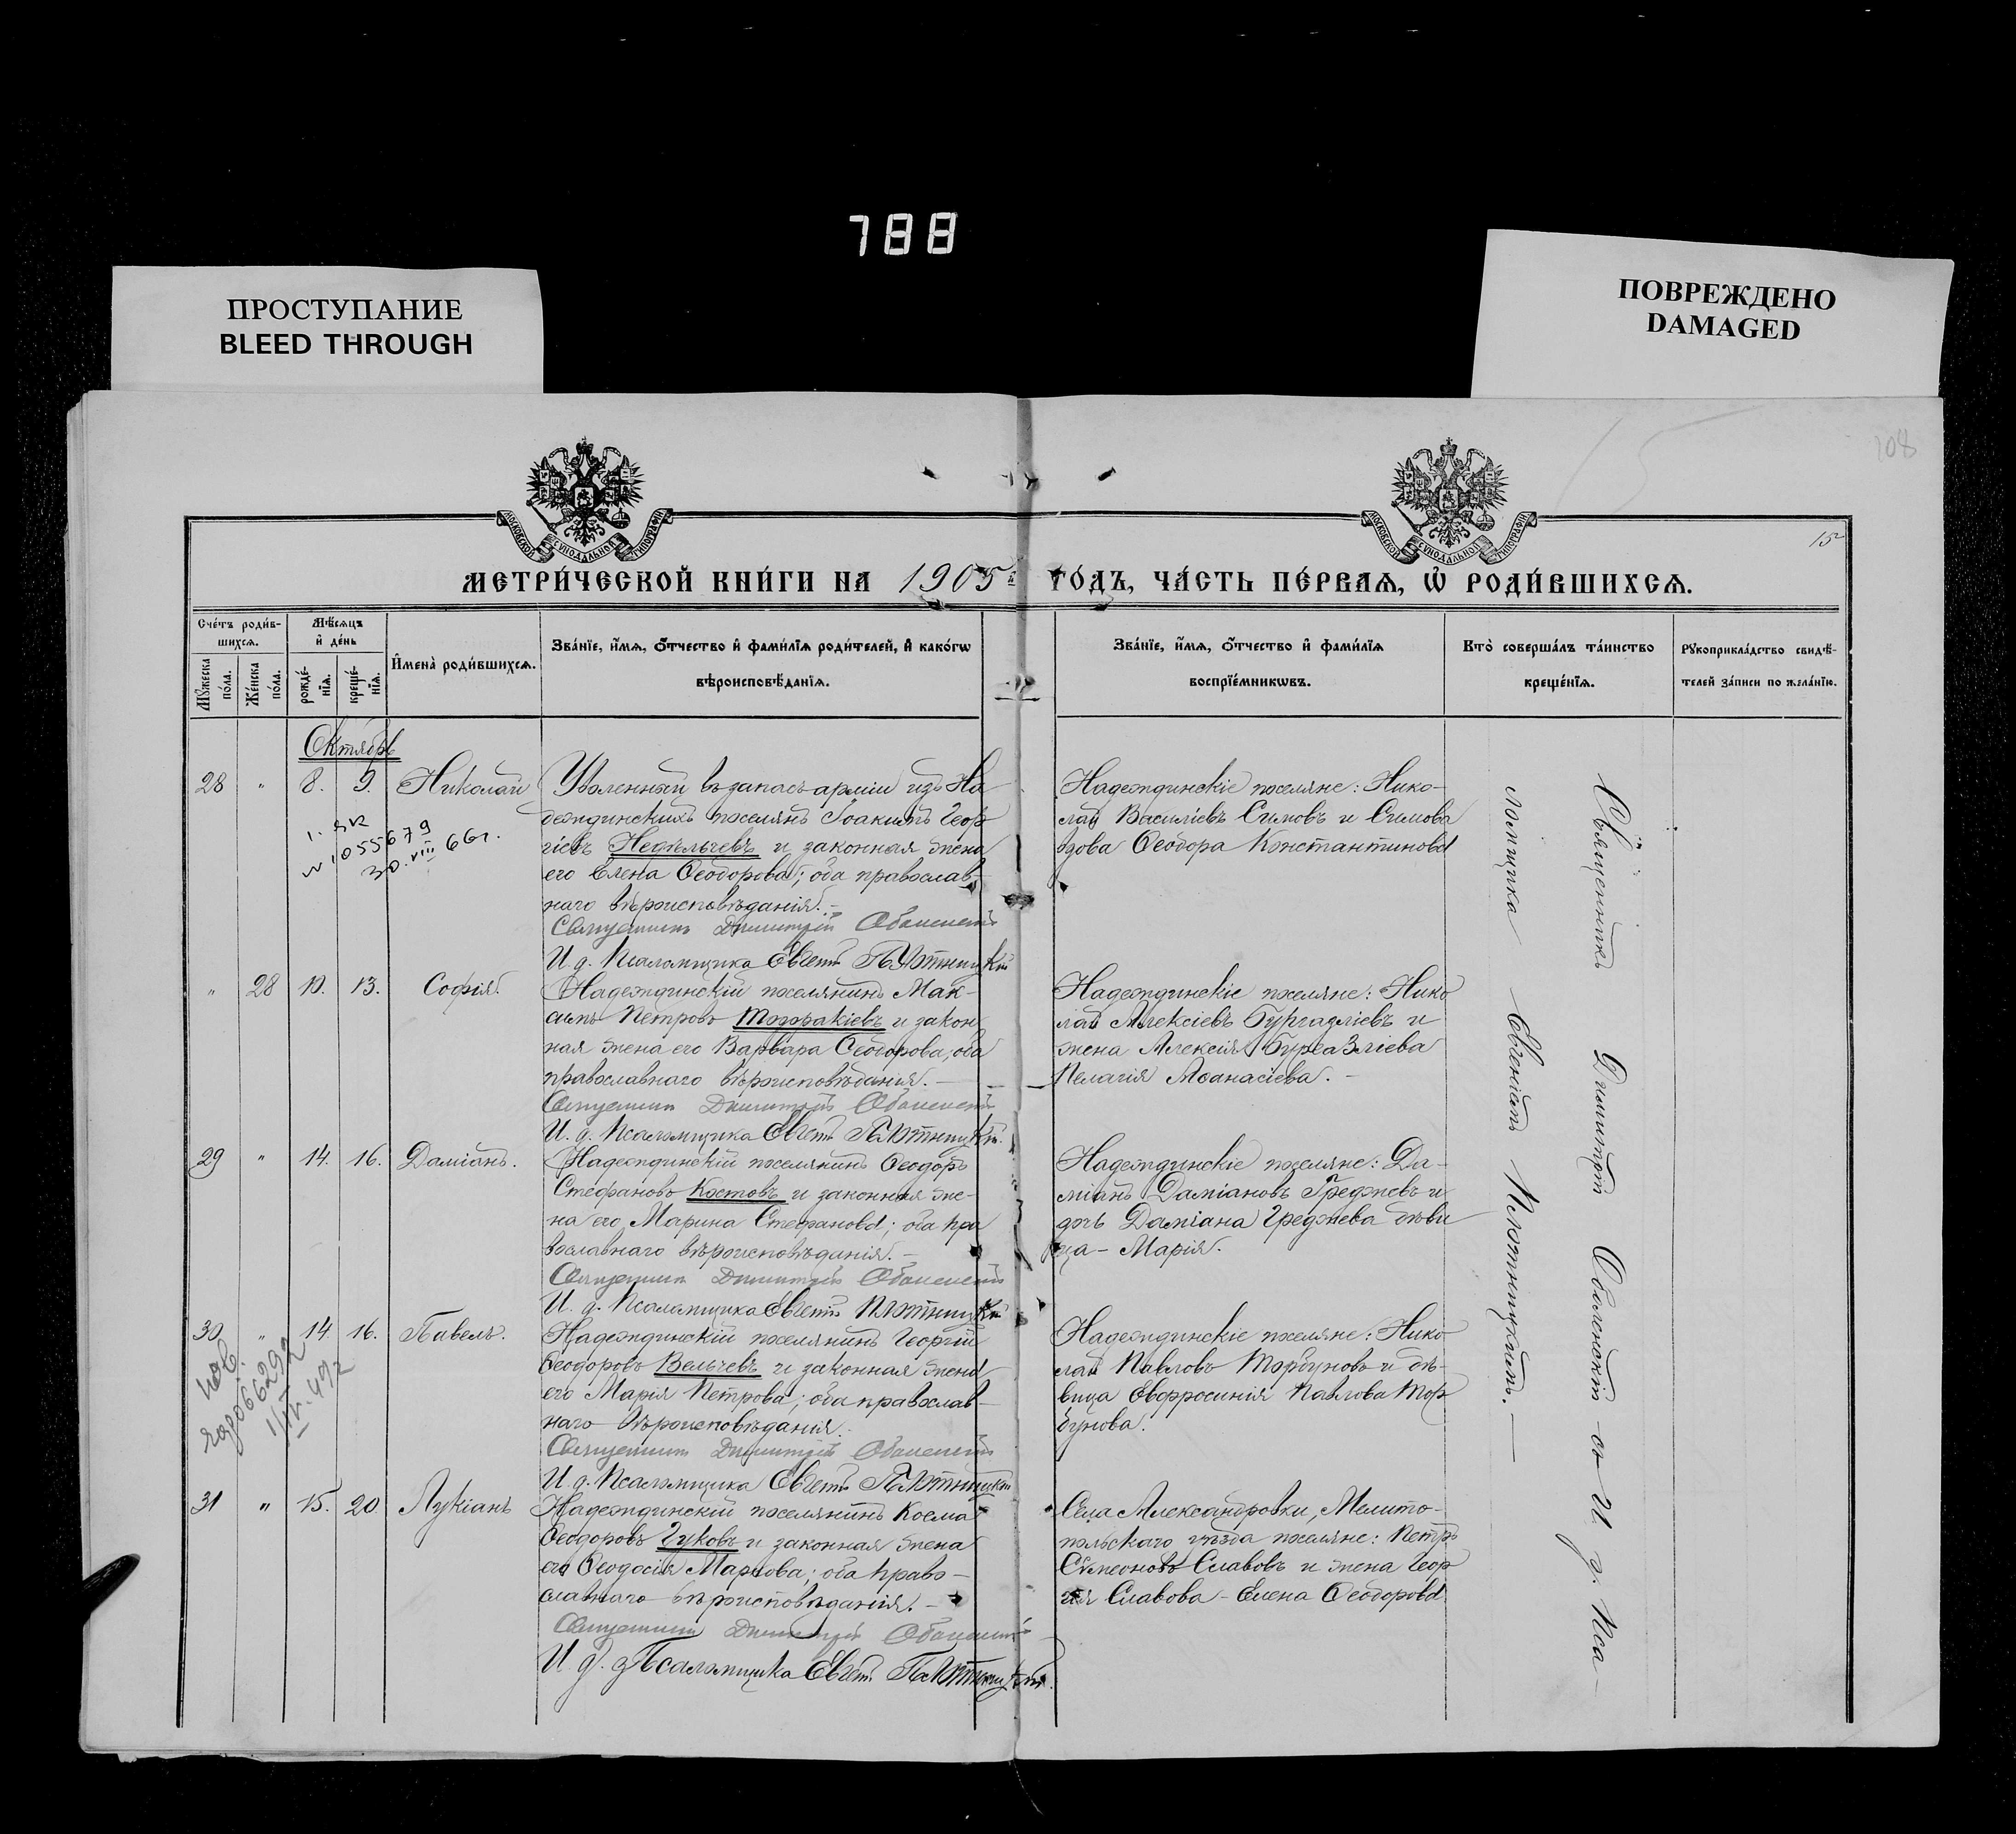 788
ПРОСТУПАНИЕ
BLEED THROUGH
ПОВРЕЖДЕНО
DAMAGED
108
15
15
МОСКОВСКОЙ СѴНОДАЛЬНОЙ ТИПОГРАФІИ
МОСКОВСКОЙ СѴНОДАЛЬНОЙ ТИПОГРАФІИ
МЕТРИ́ЧЕСКОЙ КНИ́ГИ НА 1905 й ГО́ДЪ, ЧА́СТЬ ПЕ́РВАѦ, Ѡ҆ РОДИ́ВШИХСѦ.
Сче́тъ роди́в-
шихсѧ.
Мꙋ́жеска по́ла.
Же́нска по́ла.
Мѣ́сѧцъ
и҆ де́нь
рожде́-нїѧ.
креще́-нїѧ.
И҆мена̀ роди́вшихсѧ.
Зва́нїе, и҆́мѧ, ѻ҆́тчество и҆ фами́лїѧ роди́телей, и҆ како́гѡ
вѣроисповѣ́данїѧ.
Зва́нїе, и҆́мѧ, ѻ҆́тчество и҆ фами́лїѧ
воспрїе́мникѡвъ.
Кто̀ соверша́лъ та́инство
креще́нїѧ.
Рꙋкоприкла́дство свидѣ́-
телей за́писи по жела́нїю.
Октябрь
28 " 8. 9. Николай
Уволенный въ запасъ арміи изъ На
деждинскихъ поселянъ Іоакимъ Геор
гіевъ Недѣльчевъ и законная жена
его Елена Ѳеодорова; оба православ
наго вѣроисповѣданія. -
Священникъ Димитрій Оболенскій
И. д. Псаломщика Евгеній Плотницкій
Надеждинскіе поселяне: Нико-
лай Василіевъ Симовъ и Симова
вдова Ѳеодора Константинова
1055679
30. VIII 66г.
" 28 10. 13. Софія.
Надеждинскій поселянинъ Мак-
симъ Петровъ Топракіевъ и закон
ная жена его Варвара Ѳеодорова; оба
православнаго вѣроисповѣданія. -
Священникъ Димитрій Оболенскій
И. д. Псаломщика Евгеній Плотницкій.
Надеждинскіе поселяне: Нико
лай Алексіевъ Бургазліевъ и
жена Алексія Бургазліева
Пелагія Аѳанасіева. -
29 " 14. 16. Даміанъ.
Надеждинскій поселянинъ Ѳеодоръ
Стефановъ Костовъ и законная же-
на его Марина Стефанова; оба пра
вославнаго вѣроисповѣданія. -
Священникъ Димитрій Оболенскій
И. д. Псаломщика Евгеній Плотницкій
Надеждинскіе поселяне: Да-
міанъ Даміановъ Греджевъ и
дочь Даміана Греджева дѣви
ца - Марія.
30 " 14 16. Павелъ.
Надеждинскій поселянинъ Георгій
Ѳеодоровъ Вельчевъ и законная жена
его Марія Петрова; оба православ-
наго вѣроисповѣданія.
Священникъ Димитрій Оболенскій
И. д. Псаломщика Евгеній Плотницкій
Надеждинскіе поселяне: Нико
лай Павловъ Торбуновъ и дѣ-
вица Евфросинія Павлова Тор
бунова.
31 " 15. 20. Лукіанъ
Надеждинскій поселянинъ Косма
Ѳеодоровъ Чуковъ и законная жена
его Ѳеодосія Маркова; оба право-
славнаго вѣроисповѣданія. -
Священникъ Димитрій Оболенскій
И. д. Псаломщика Евгеній Плотницкій.
Села Александровки, Мелито-
польскаго уѣзда поселяне: Петръ
Симеоновъ Славовъ и жена Геор
гія Славова - Елена Ѳеодорова
Священникъ Димитрій Оболенскій съ И. д. Пса-
ломщика Евгеніемъ Плотницкимъ. -